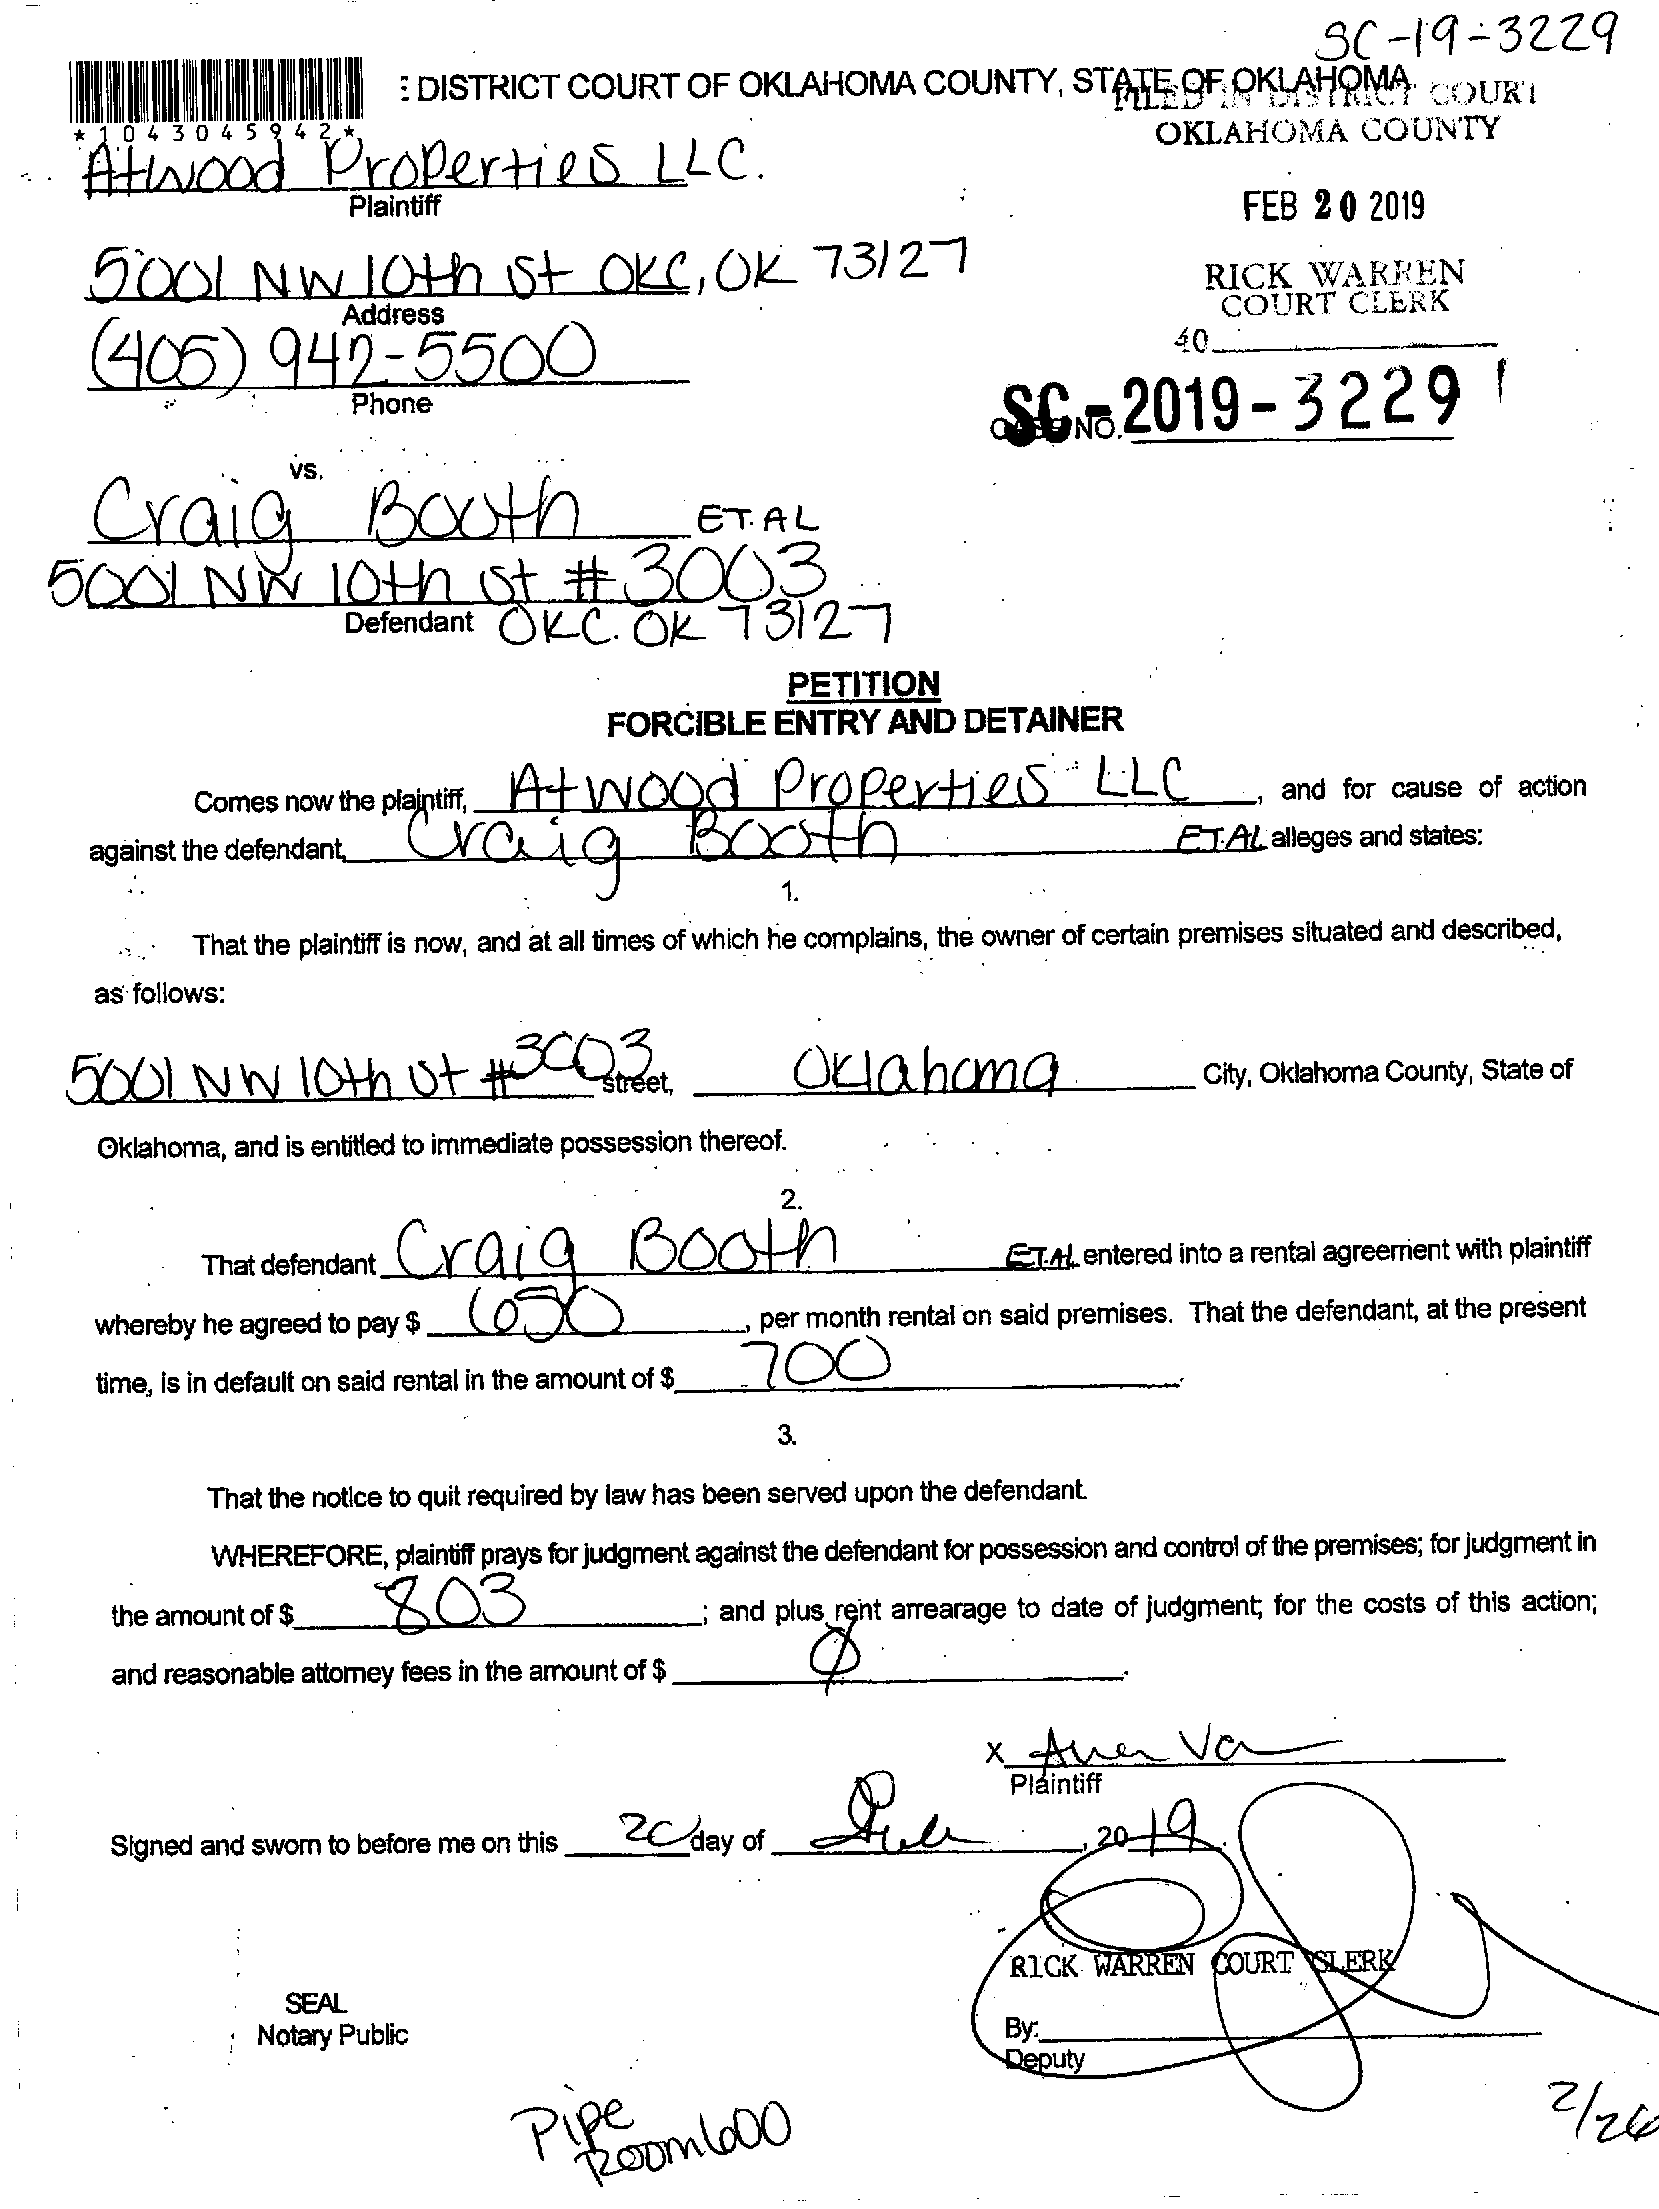 SC-19-3229
: DISTRICT COURT OF OKLAHOMA COUNTY, STATE OF OKLAHOMA
FILED IN DISTRICT COURT
OKLAHOMA COUNTY
*1043045942*
Atwood Properties LLC.
Plaintiff
FEB 20 2019
5001 NW 10th St OKC, OK 73127
Address
RICK WARREN
COURT CLERK
(405) 942-5500
40
Phone
SC-2019-3229
CASE NO.
vs.
Craig Booth ET.AL
5001 NW 10th St #3003
Defendant OKC. OK 73127
PETITION
FORCIBLE ENTRY AND DETAINER
Comes now the plaintiff, Atwood Properties LLC, and for cause of action
against the defendant, Craig Booth ET.AL alleges and states:
1.
That the plaintiff is now, and at all times of which he complains, the owner of certain premises situated and described,
as follows:
5001 NW 10th St #3003 street, Oklahoma City, Oklahoma County, State of
Oklahoma, and is entitled to immediate possession thereof.
2.
That defendant Craig Booth ET.AL entered into a rental agreement with plaintiff
whereby he agreed to pay $ 650, per month rental on said premises. That the defendant, at the present
time, is in default on said rental in the amount of $ 700.
3.
That the notice to quit required by law has been served upon the defendant.
WHEREFORE, plaintiff prays for judgment against the defendant for possession and control of the premises; for judgment in
the amount of $ 803; and plus rent arrearage to date of judgment; for the costs of this action;
and reasonable attorney fees in the amount of $ 0.
X
Plaintiff
Signed and sworn to before me on this 20 day of , 2019.
RICK WARREN COURT CLERK
SEAL
Notary Public
By:
Deputy
Pipe
Room 600
2/26